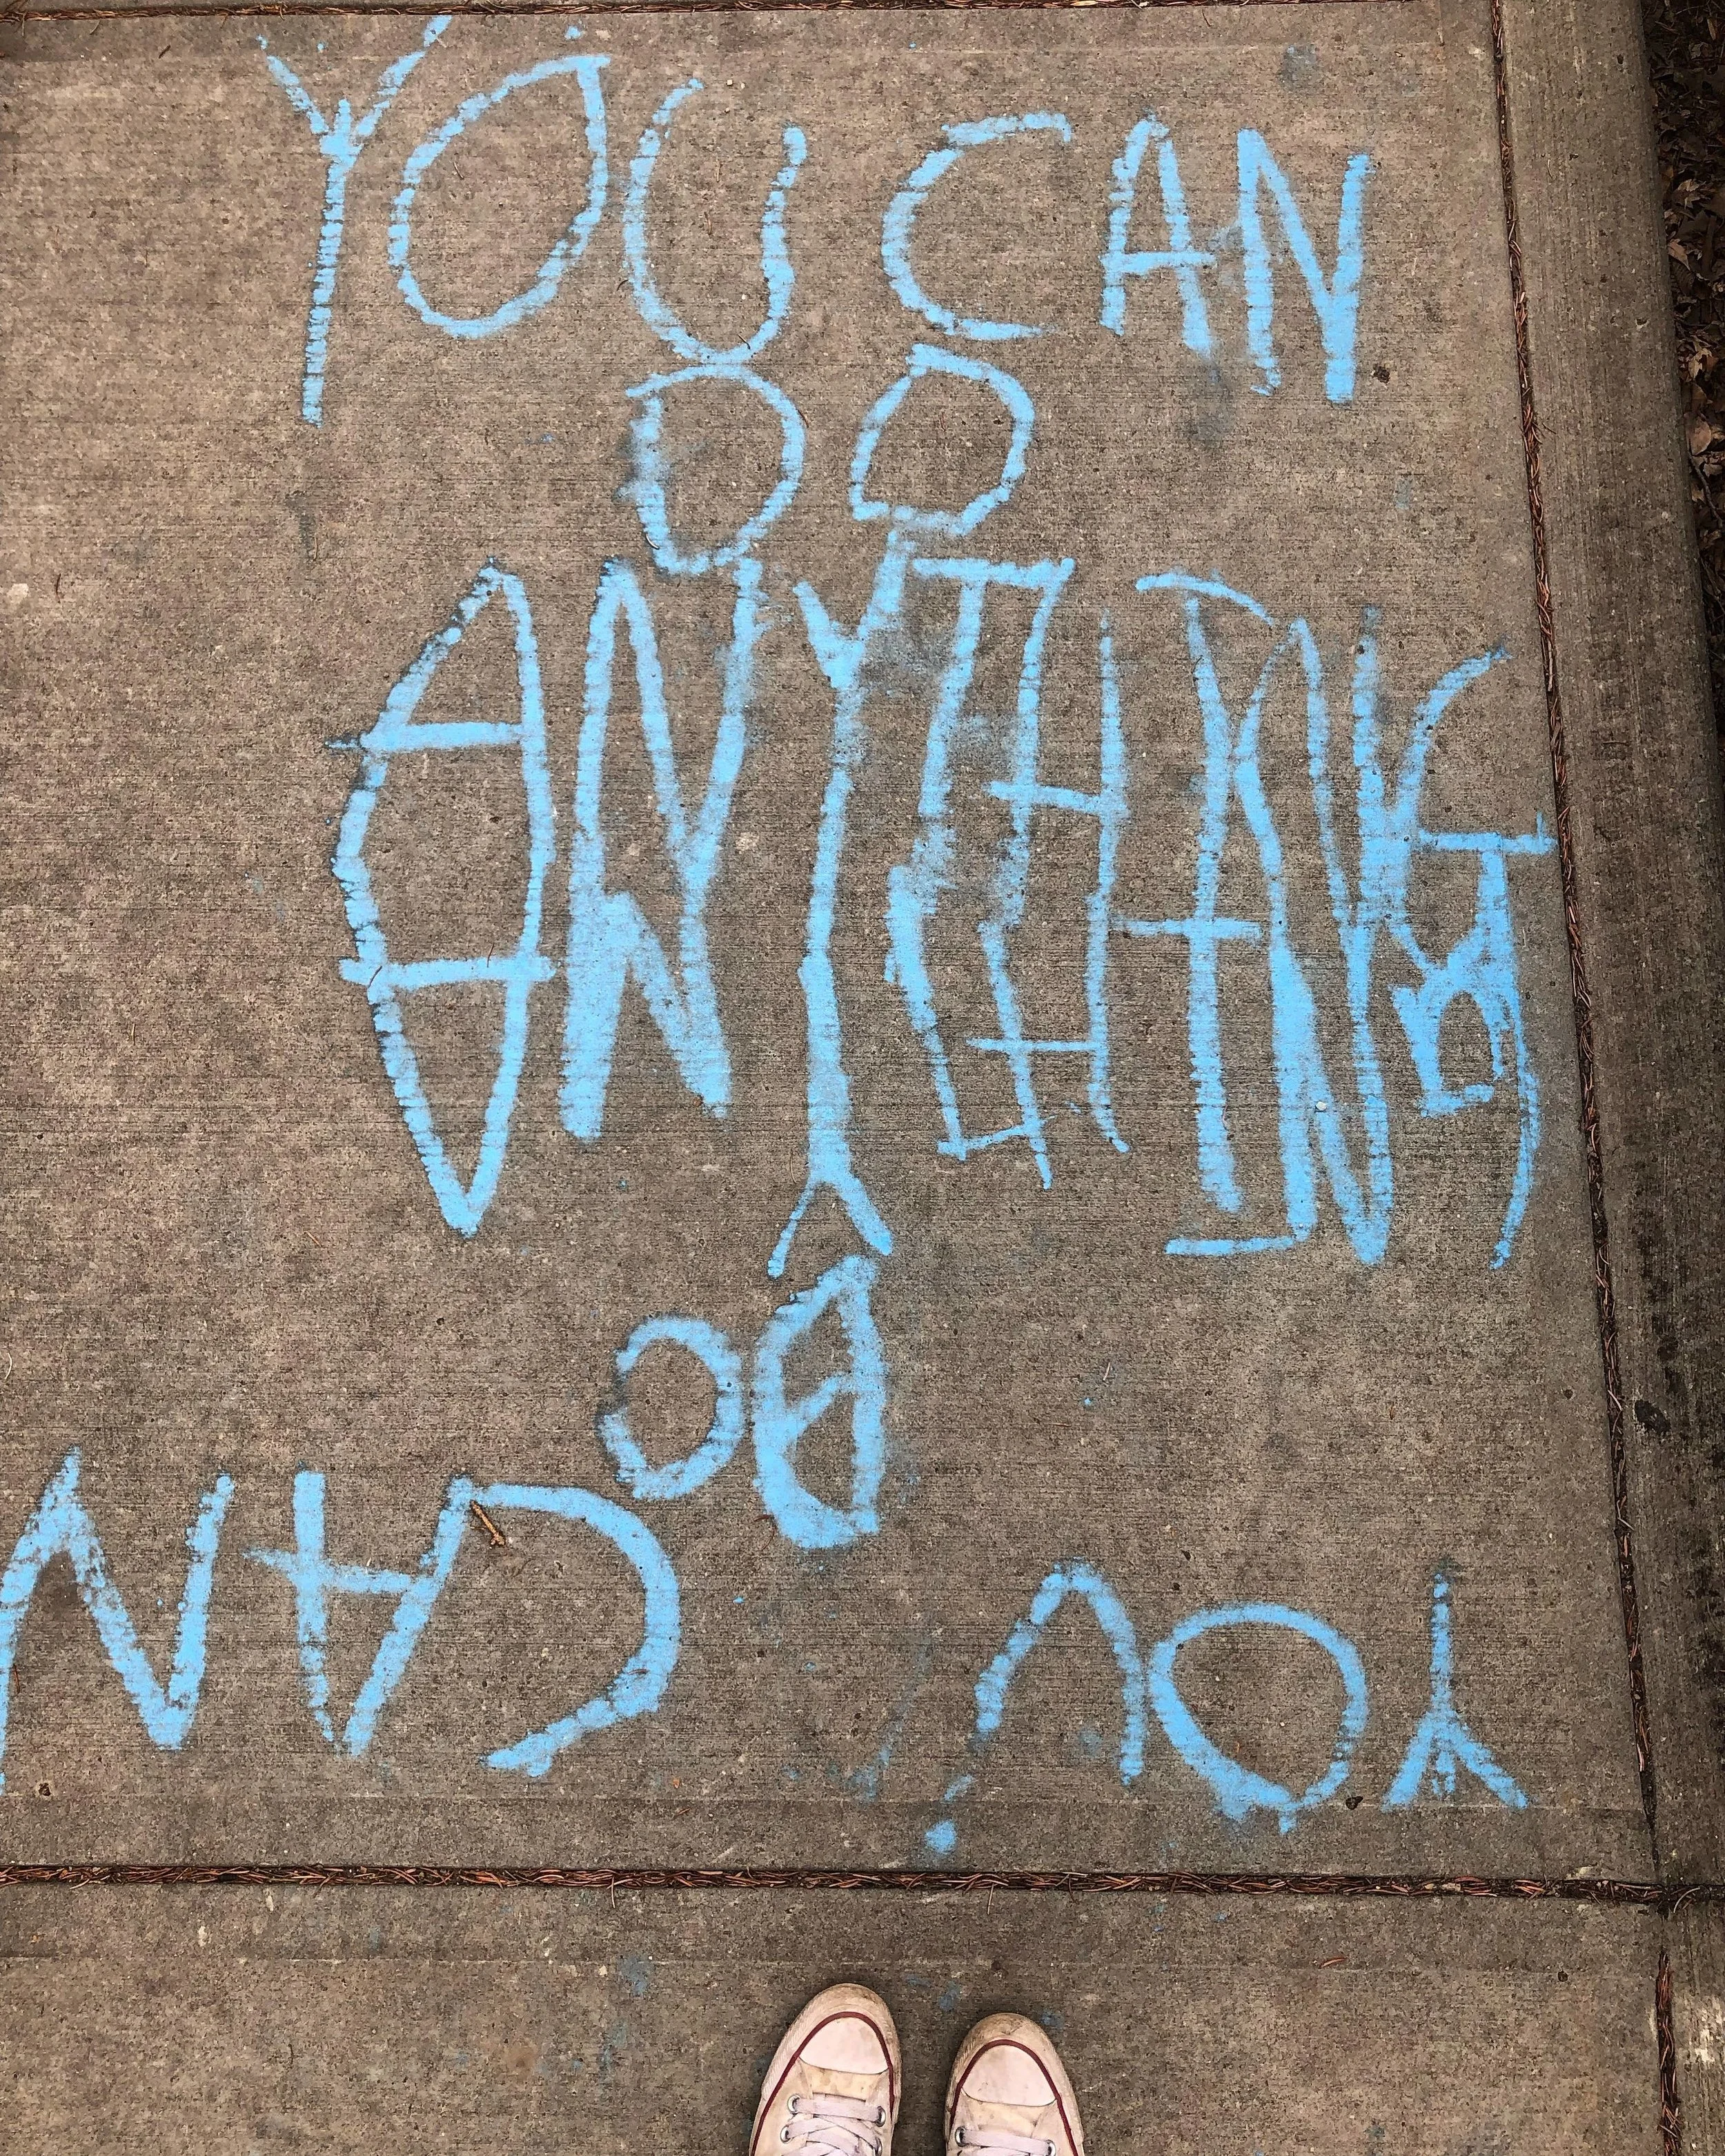 YOU CAN
DO
ANYTHING
YOU CAN
DO